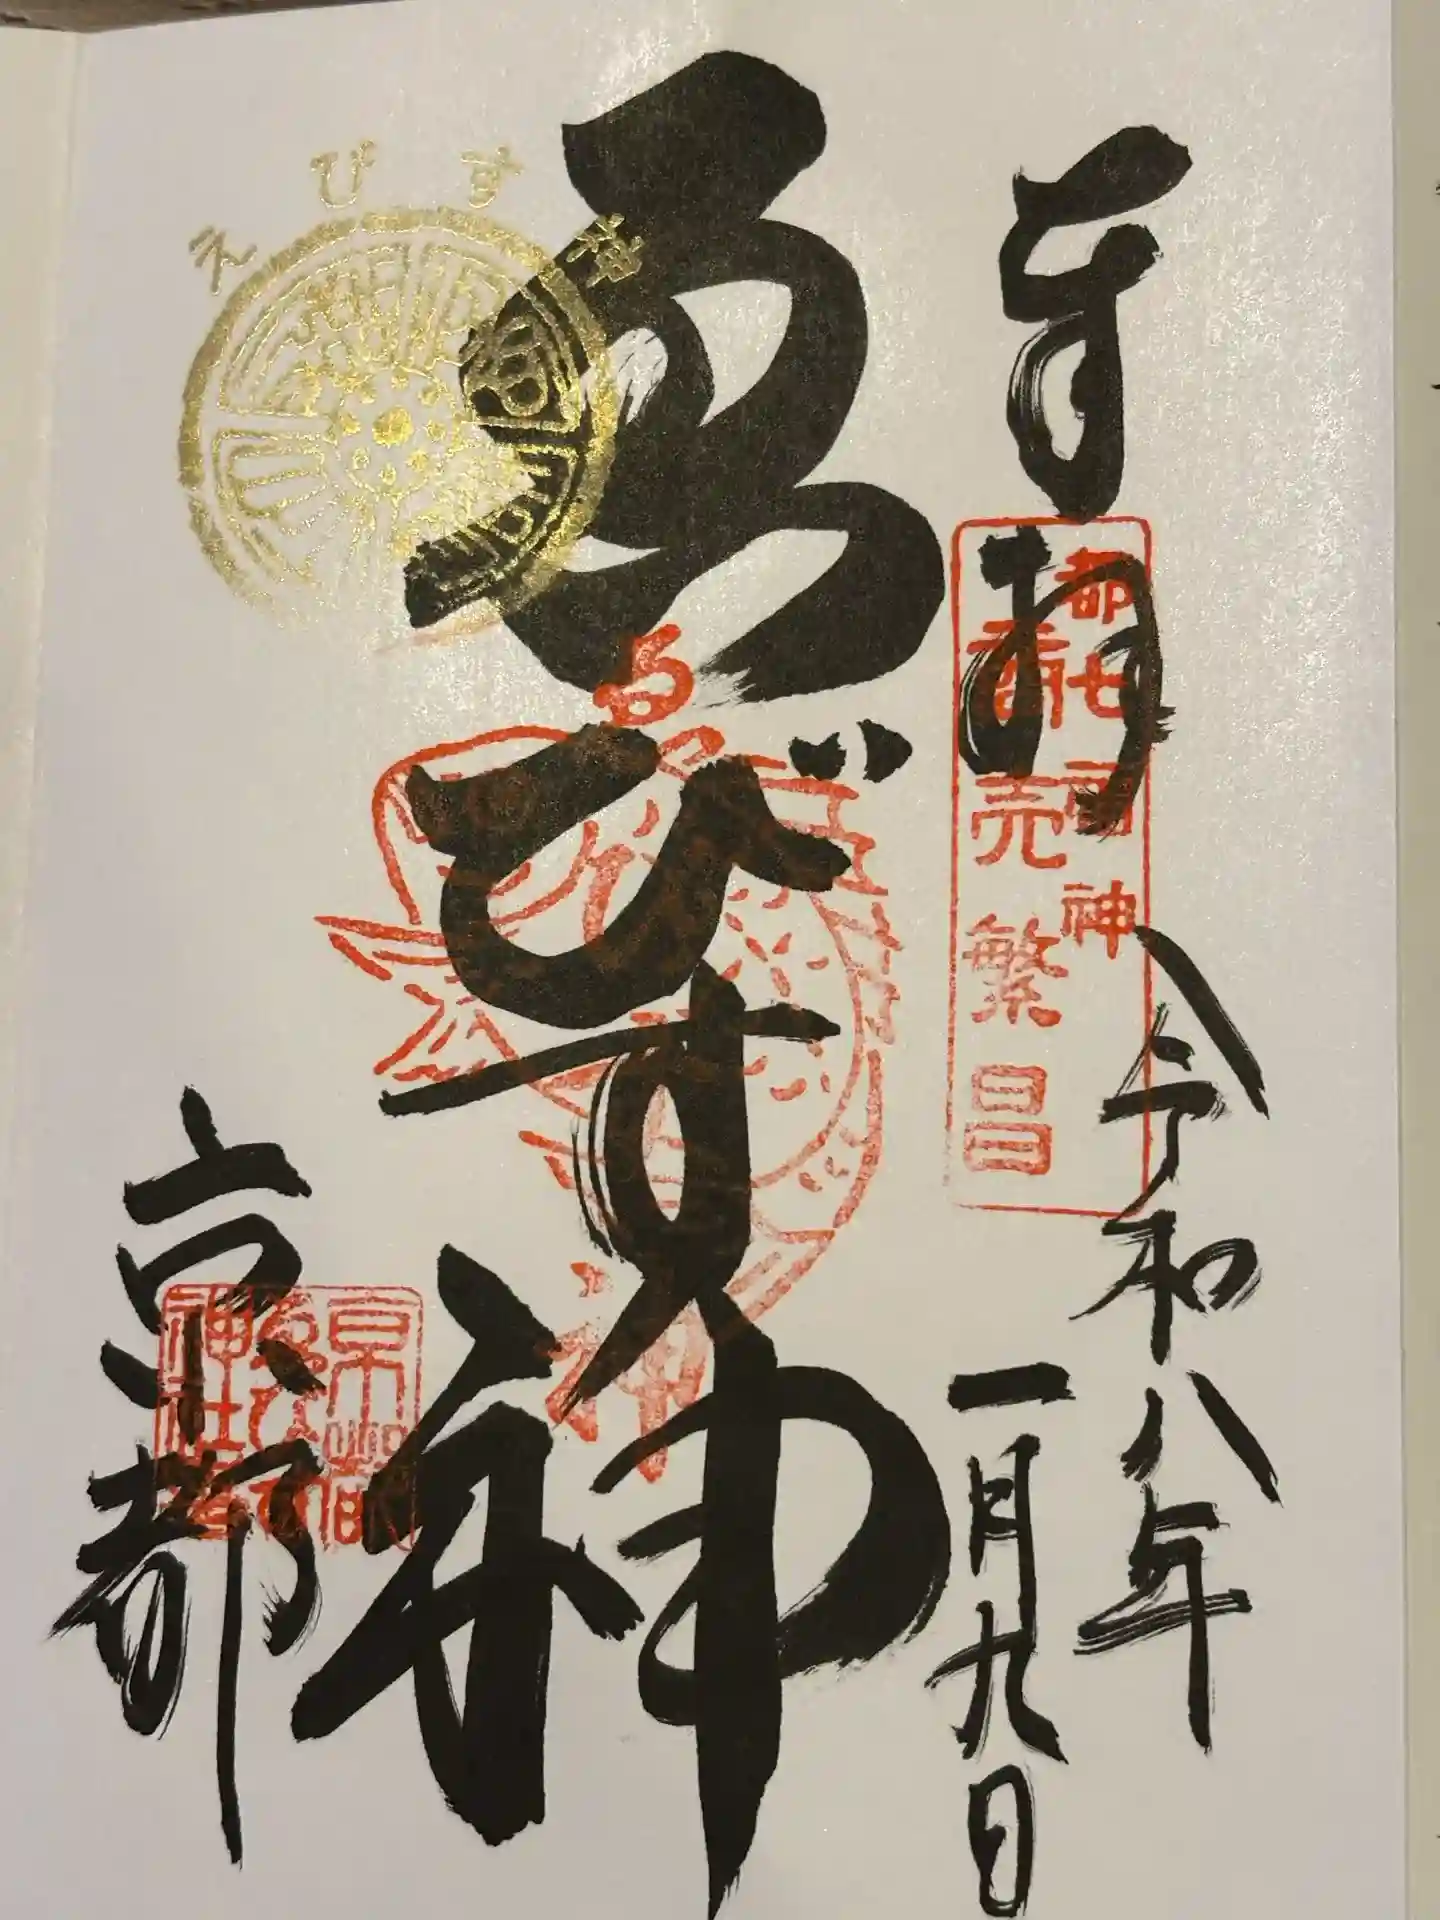 奉拝
都七福神
商売繁昌
令和八年
一月九日
ゑびす神
えびす神
京都
京都
ゑびす
神社